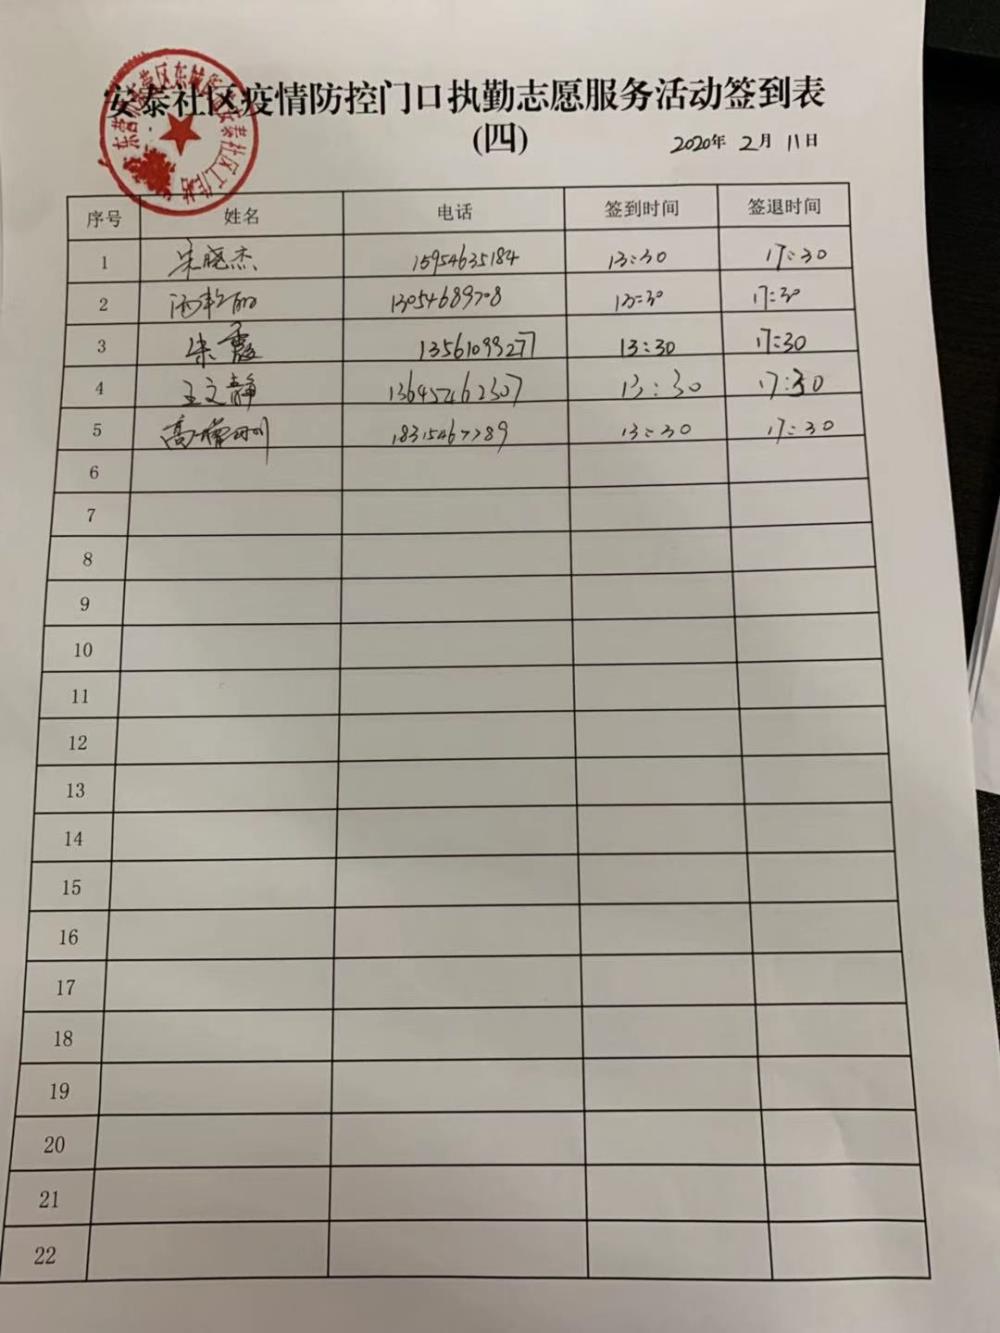 安泰社区疫情防控门口执勤志愿服务活动签到表
(四)
2020年 2月 11日
序号 姓名 电话 签到时间 签退时间
1 宋晓杰 15954635184 13:30 17:30
2 13054689708 13:30 17:30
3 宋霞 13561093277 13:30 17:30
4 王文静 13645462307 13:30 17:30
5 高 18315467789 13:30 17:30
6
7
8
9
10
11
12
13
14
15
16
17
18
19
20
21
22